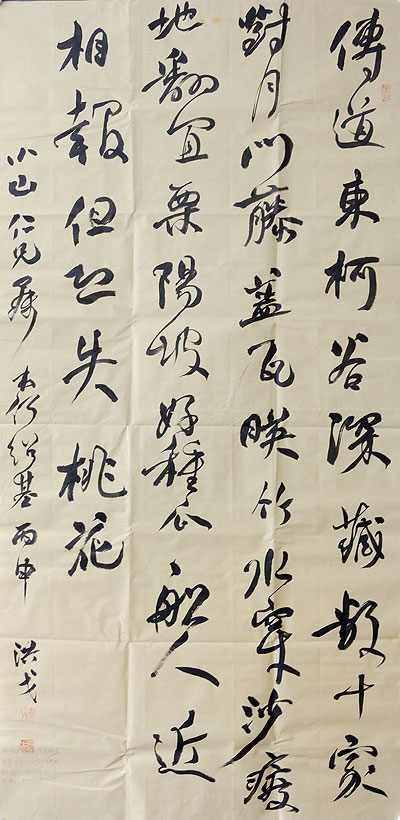 傳道東柯谷深藏數十家
對月門藤蓋瓦暎竹水穿沙瘦
地翻宜粟陽坡好種瓜船人近
相報但恐失桃花
小山仁兄屬 紹基丙申 洪戈